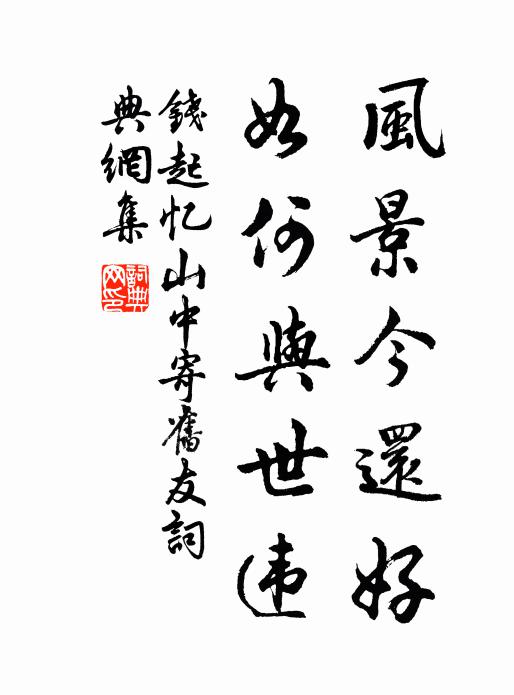 風景今還好
如何與世违
錢起忆山中寄舊友詞
典網集
詞典
网印